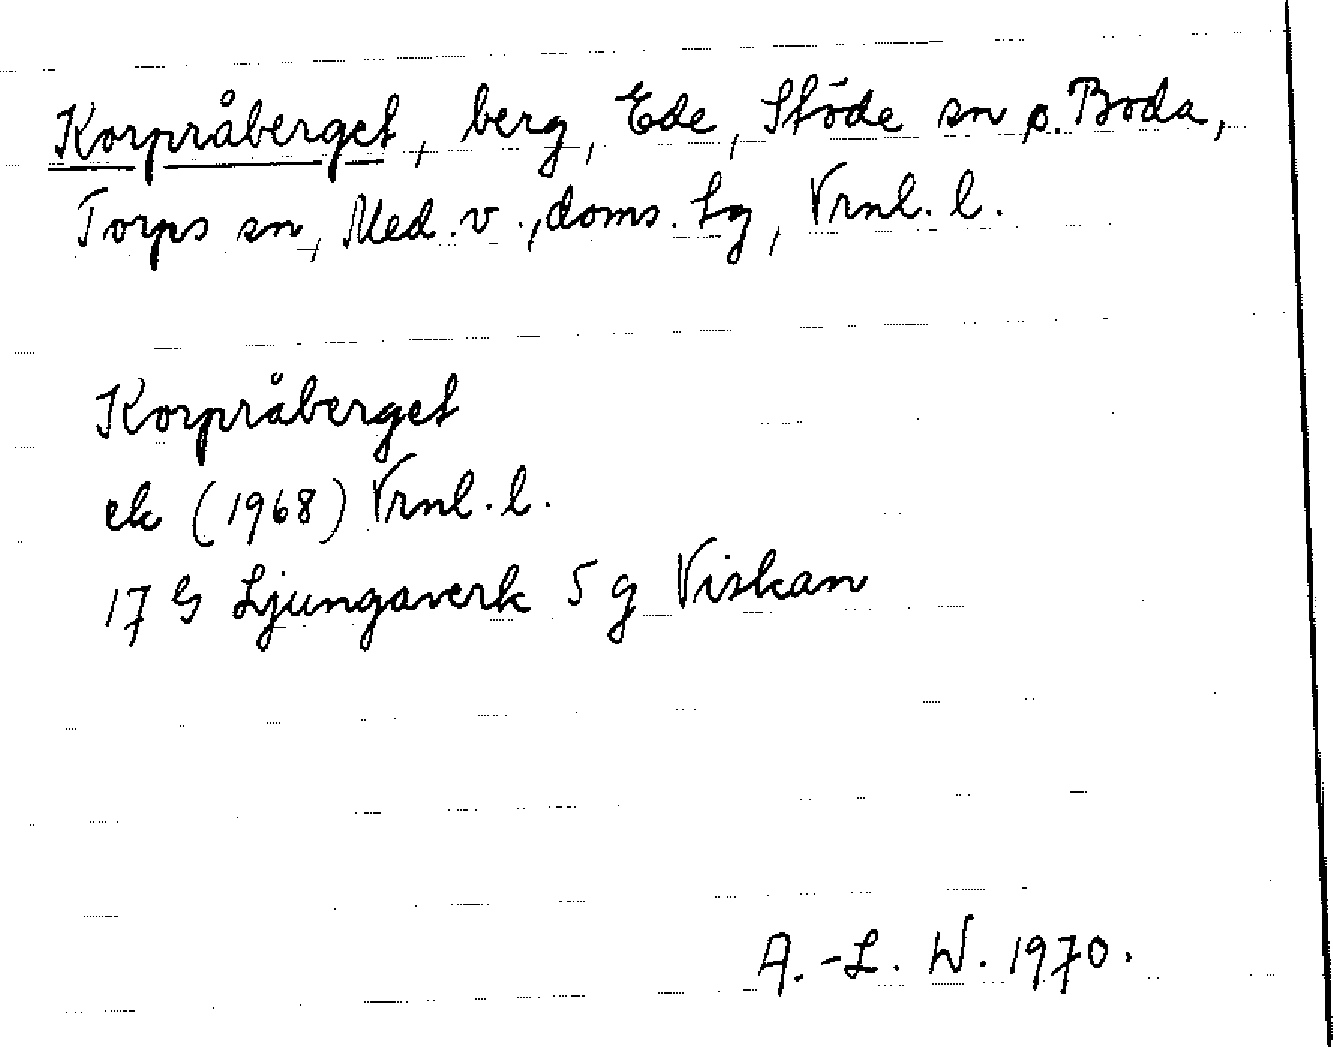 Korpråberget, berg, Ede, Stöde sn o. Boda,
Torps sn, Med. v., doms. lg, Vrnl. l.
Korpråberget
ek (1968) Vrnl. l.
17 G Ljungaverk 5 g Viskan
A.-L. W. 1970.